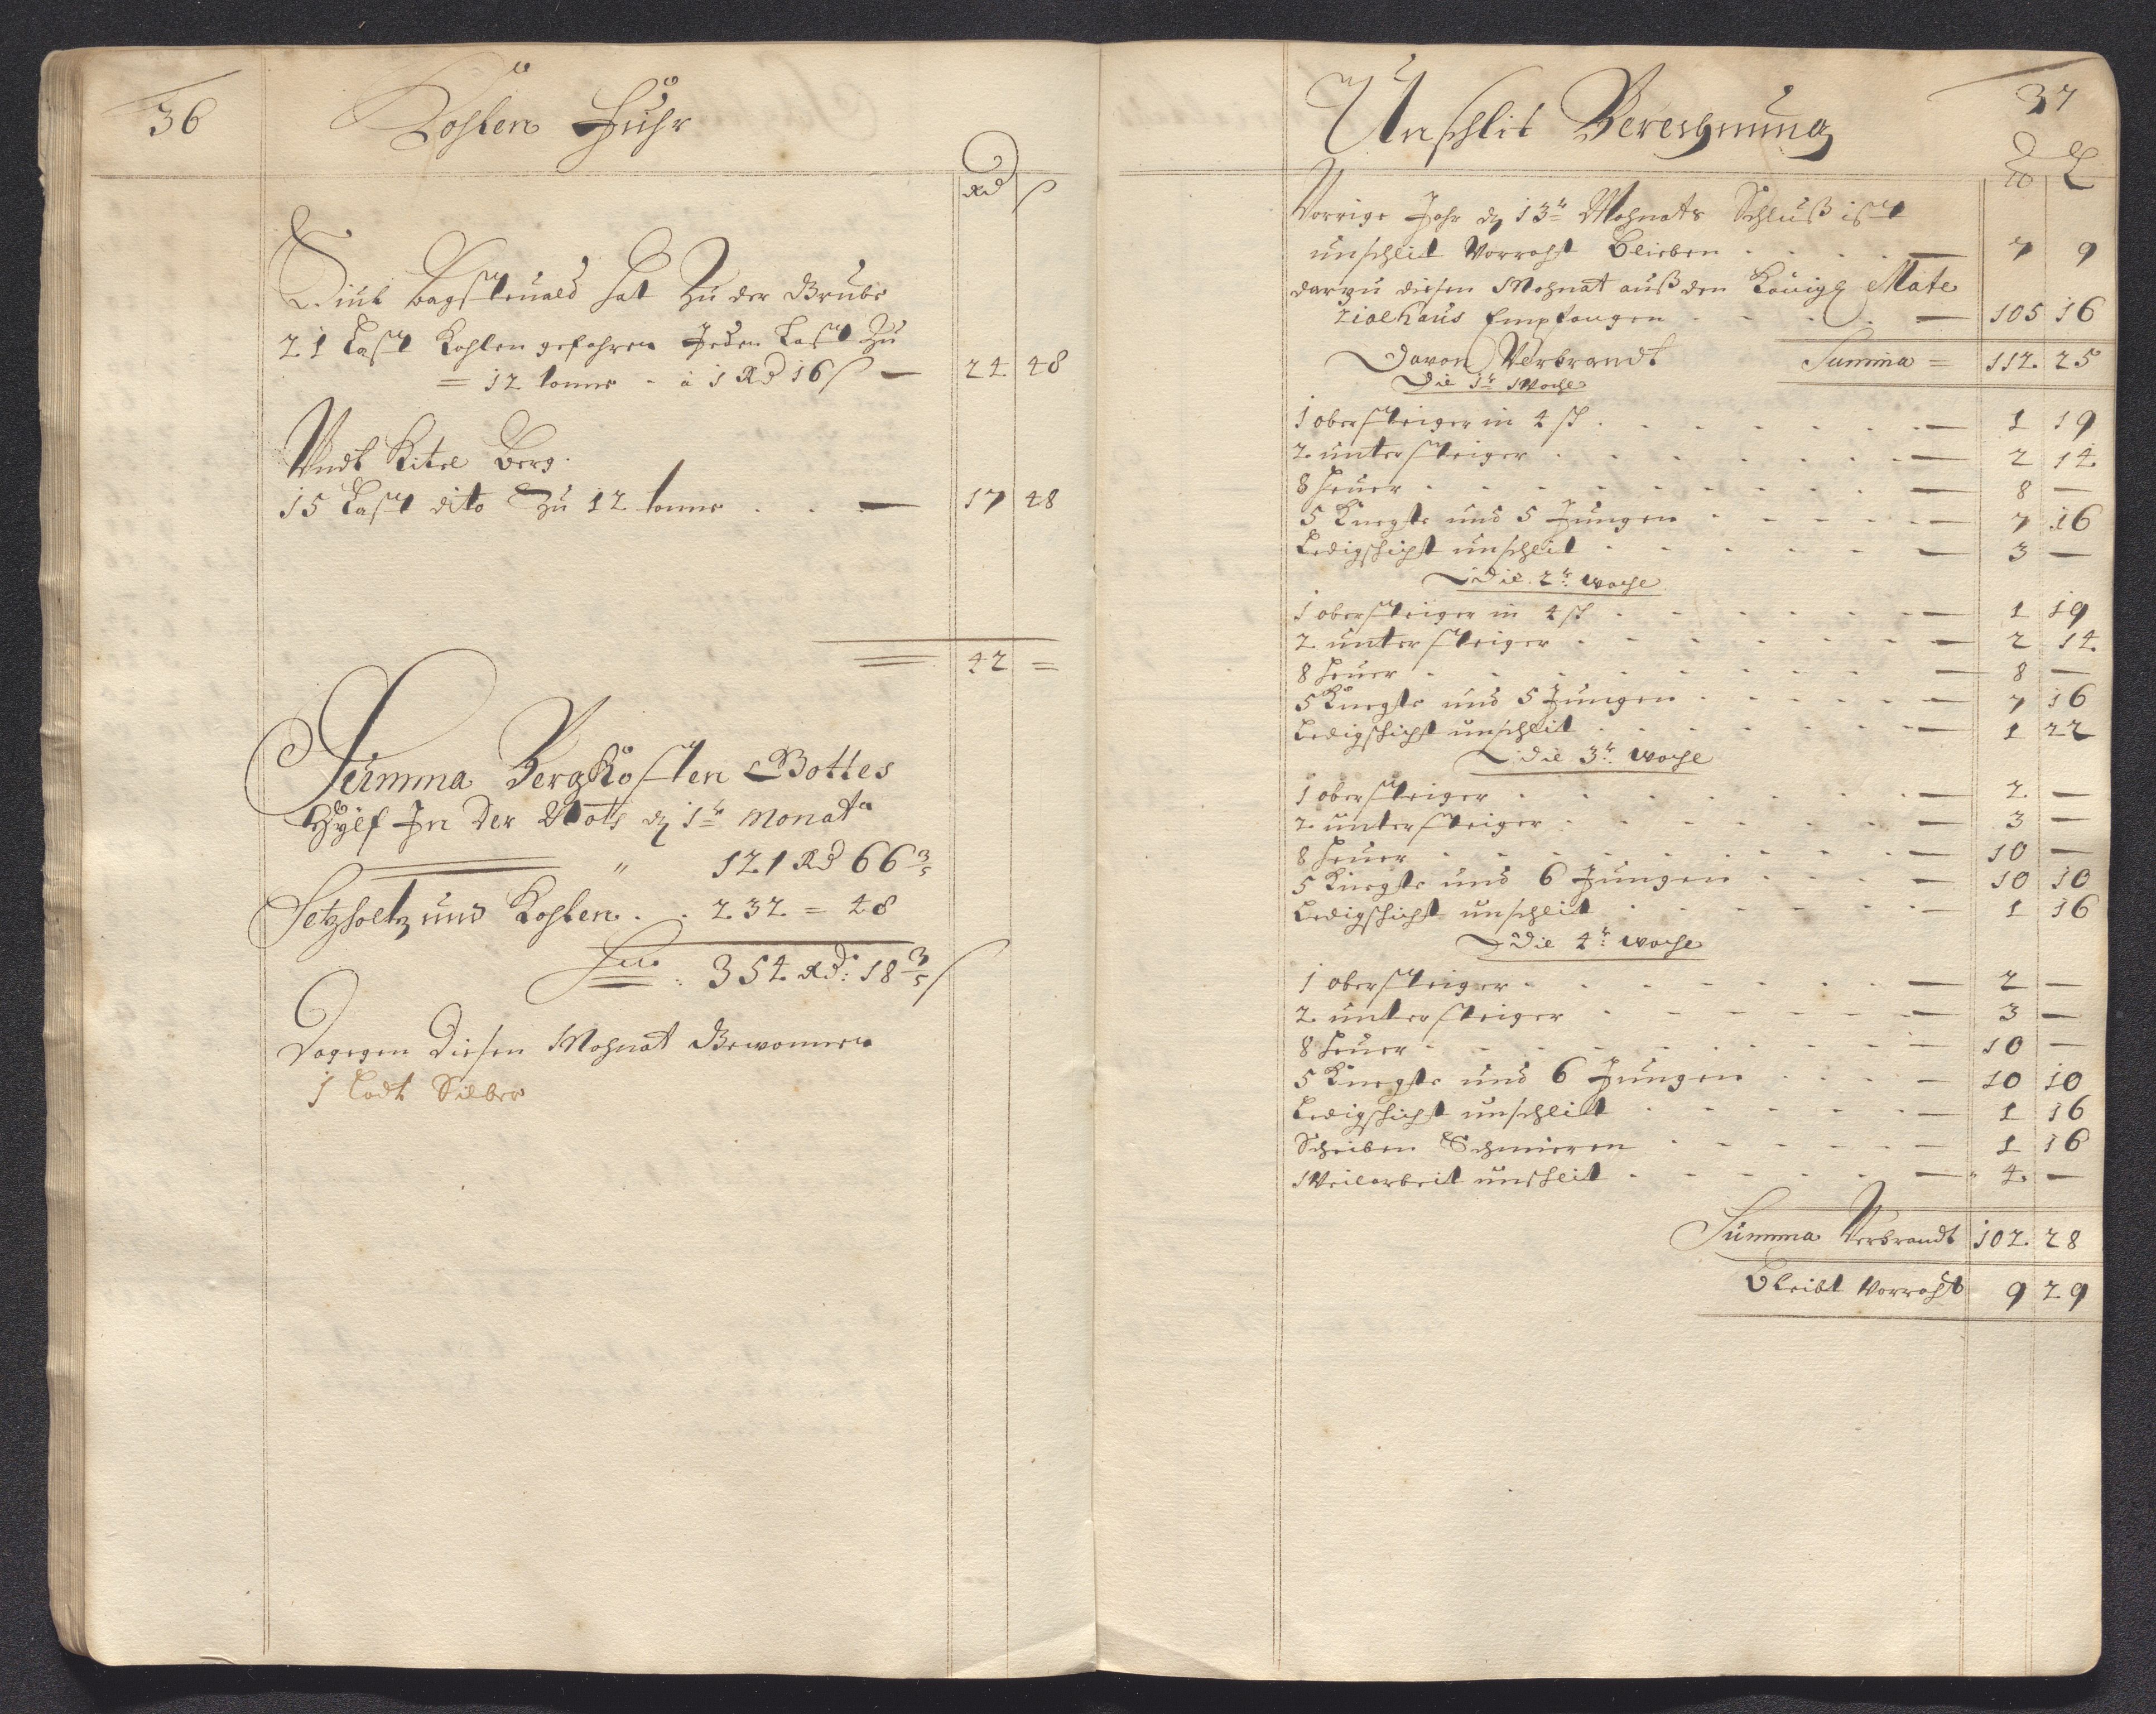 36
Kohlen Fuhr
Rd ß
hat Zu der Grube
21 Last Kohlen gefahren Jeden Last Zu
= 12 tonne - a 1 Rd 16 ß — 24 48
Kitel Berg.
15 Last dito Zu 12 tonne . . — 17 48
42 =
Summa BergKosten Gottes
Hylf In Der Noth 1te Monat
" 121 Rd 66 3/5
Setzholtz und Kohlen . . 232 = 48
Sum : 354 Rd: 18 3/5 ß
Dagegen Diesen Mohnat Gewonnen
1 Lodt Silber
37
Unschlit Berechnung
Vorrige Jahr 13te Mohnats Schluß ist
unschlit Vorraht Blieben . . . . — 7 9
darzu diesen Mohnat auß den Königl Mate
rialhaus Empfangen - - . . — 105 16
Davon Verbrandt Summa = 112 25
Die 1te Woche
1 obersteiger in 4 sch . . . . — 1 19
2 untersteiger . . . . — 2 14
8 Heuer . . . . — 8 —
5 Knegte und 5 Jungen . . . . — 7 16
Ledigschicht unschlit . . . . — 3 —
Die 2te woche
1 obersteiger in 4 sch . . . . — 1 19
2 untersteiger . . . . — 2 14
8 Heuer . . . . — 8 —
5 Knegte und 5 Jungen . . . . — 7 16
Ledigschicht unschlit . . . . — 1 22
Die 3te woche
1 obersteiger . . . . — 2 —
2 untersteiger . . . . — 3 —
8 Heuer . . . . — 10 —
5 Knegte und 6 Jungen . . . — 10 10
Ledigschicht unschlit . . . . — 1 16
Die 4te woche
1 obersteiger . . . . — 2 —
2 untersteiger . . . . — 3 —
8 Heuer . . . . — 10 —
5 Knegte und 6 Jungen . . . — 10 10
Ledigschicht unschlitt . . . . — 1 16
Scheiben Schmieren . . . . — 1 16
Weilarbeit unschlit . . . . — 4 —
Summa Verbrandt 102 28
Bleibt Vorraht 9 29